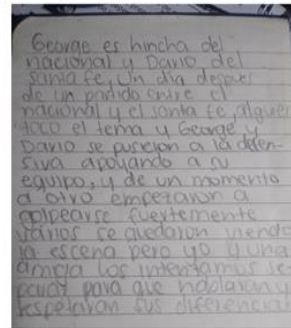 George es hincha del
nacional y Dario del
santa fe, Un dia despues
de un partido entre el
nacional y el santa fe, alguien
toco el tema y George y
Dario se pusieron a la defen-
siva apoyando a su
equipo, y de un momento
a otro empezaron a
golpearse fuertemente
varios se quedaron viendo
la escena pero yo y una
amiga los intentamos se-
parar para que hablaran y
respetaran sus diferencias